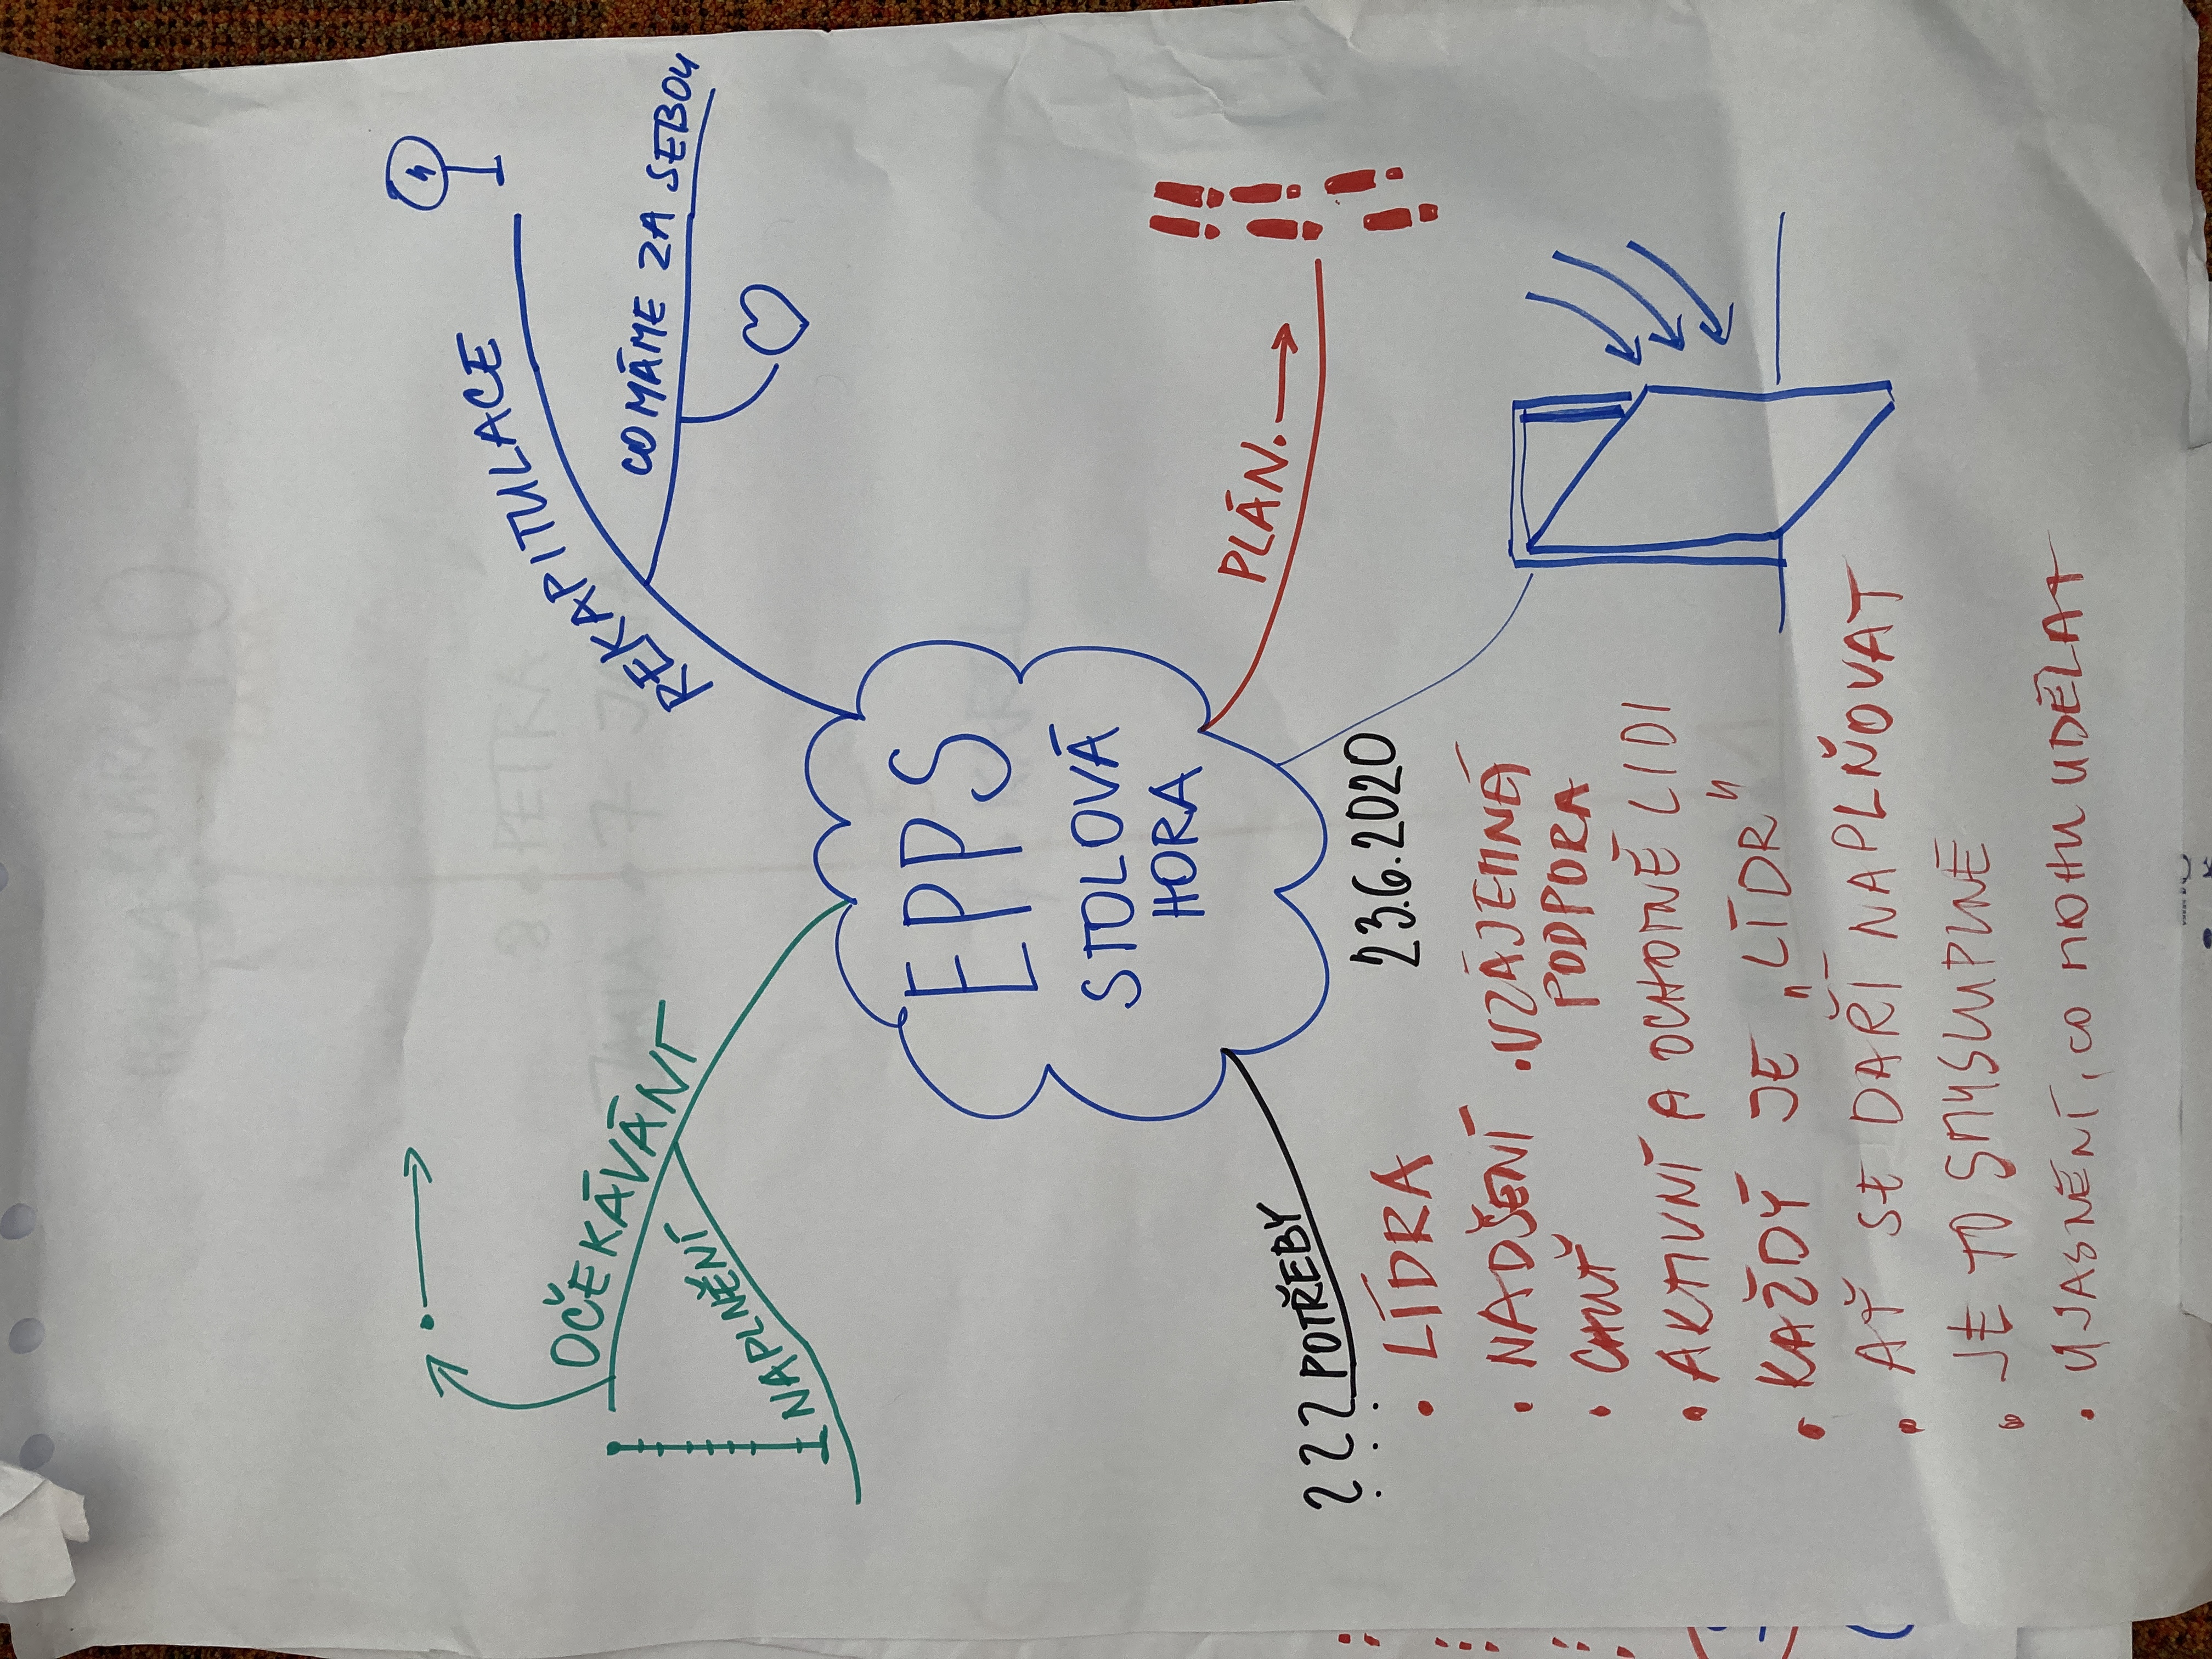 OČEKÁVÁNÍ
NAPLNĚNÍ
REKAPITULACE
CO MÁME ZA SEBOU
EPPS
STOLOVÁ
HORA
PLÁN.
23.6.2020
??? POTŘEBY
• LÍDRA
• NADŠENÍ • VZÁJEMNÁ
PODPORA
• CHUŤ
• AKTIVNÍ A OCHOTNĚ LIDI
• KAŽDÝ JE „LÍDR"
• AŤ SE DAŘÍ NAPLŇOVAT
• JE TO SMYSLUPLNÉ
• UJASNĚNÍ, CO MOHU UDĚLAT